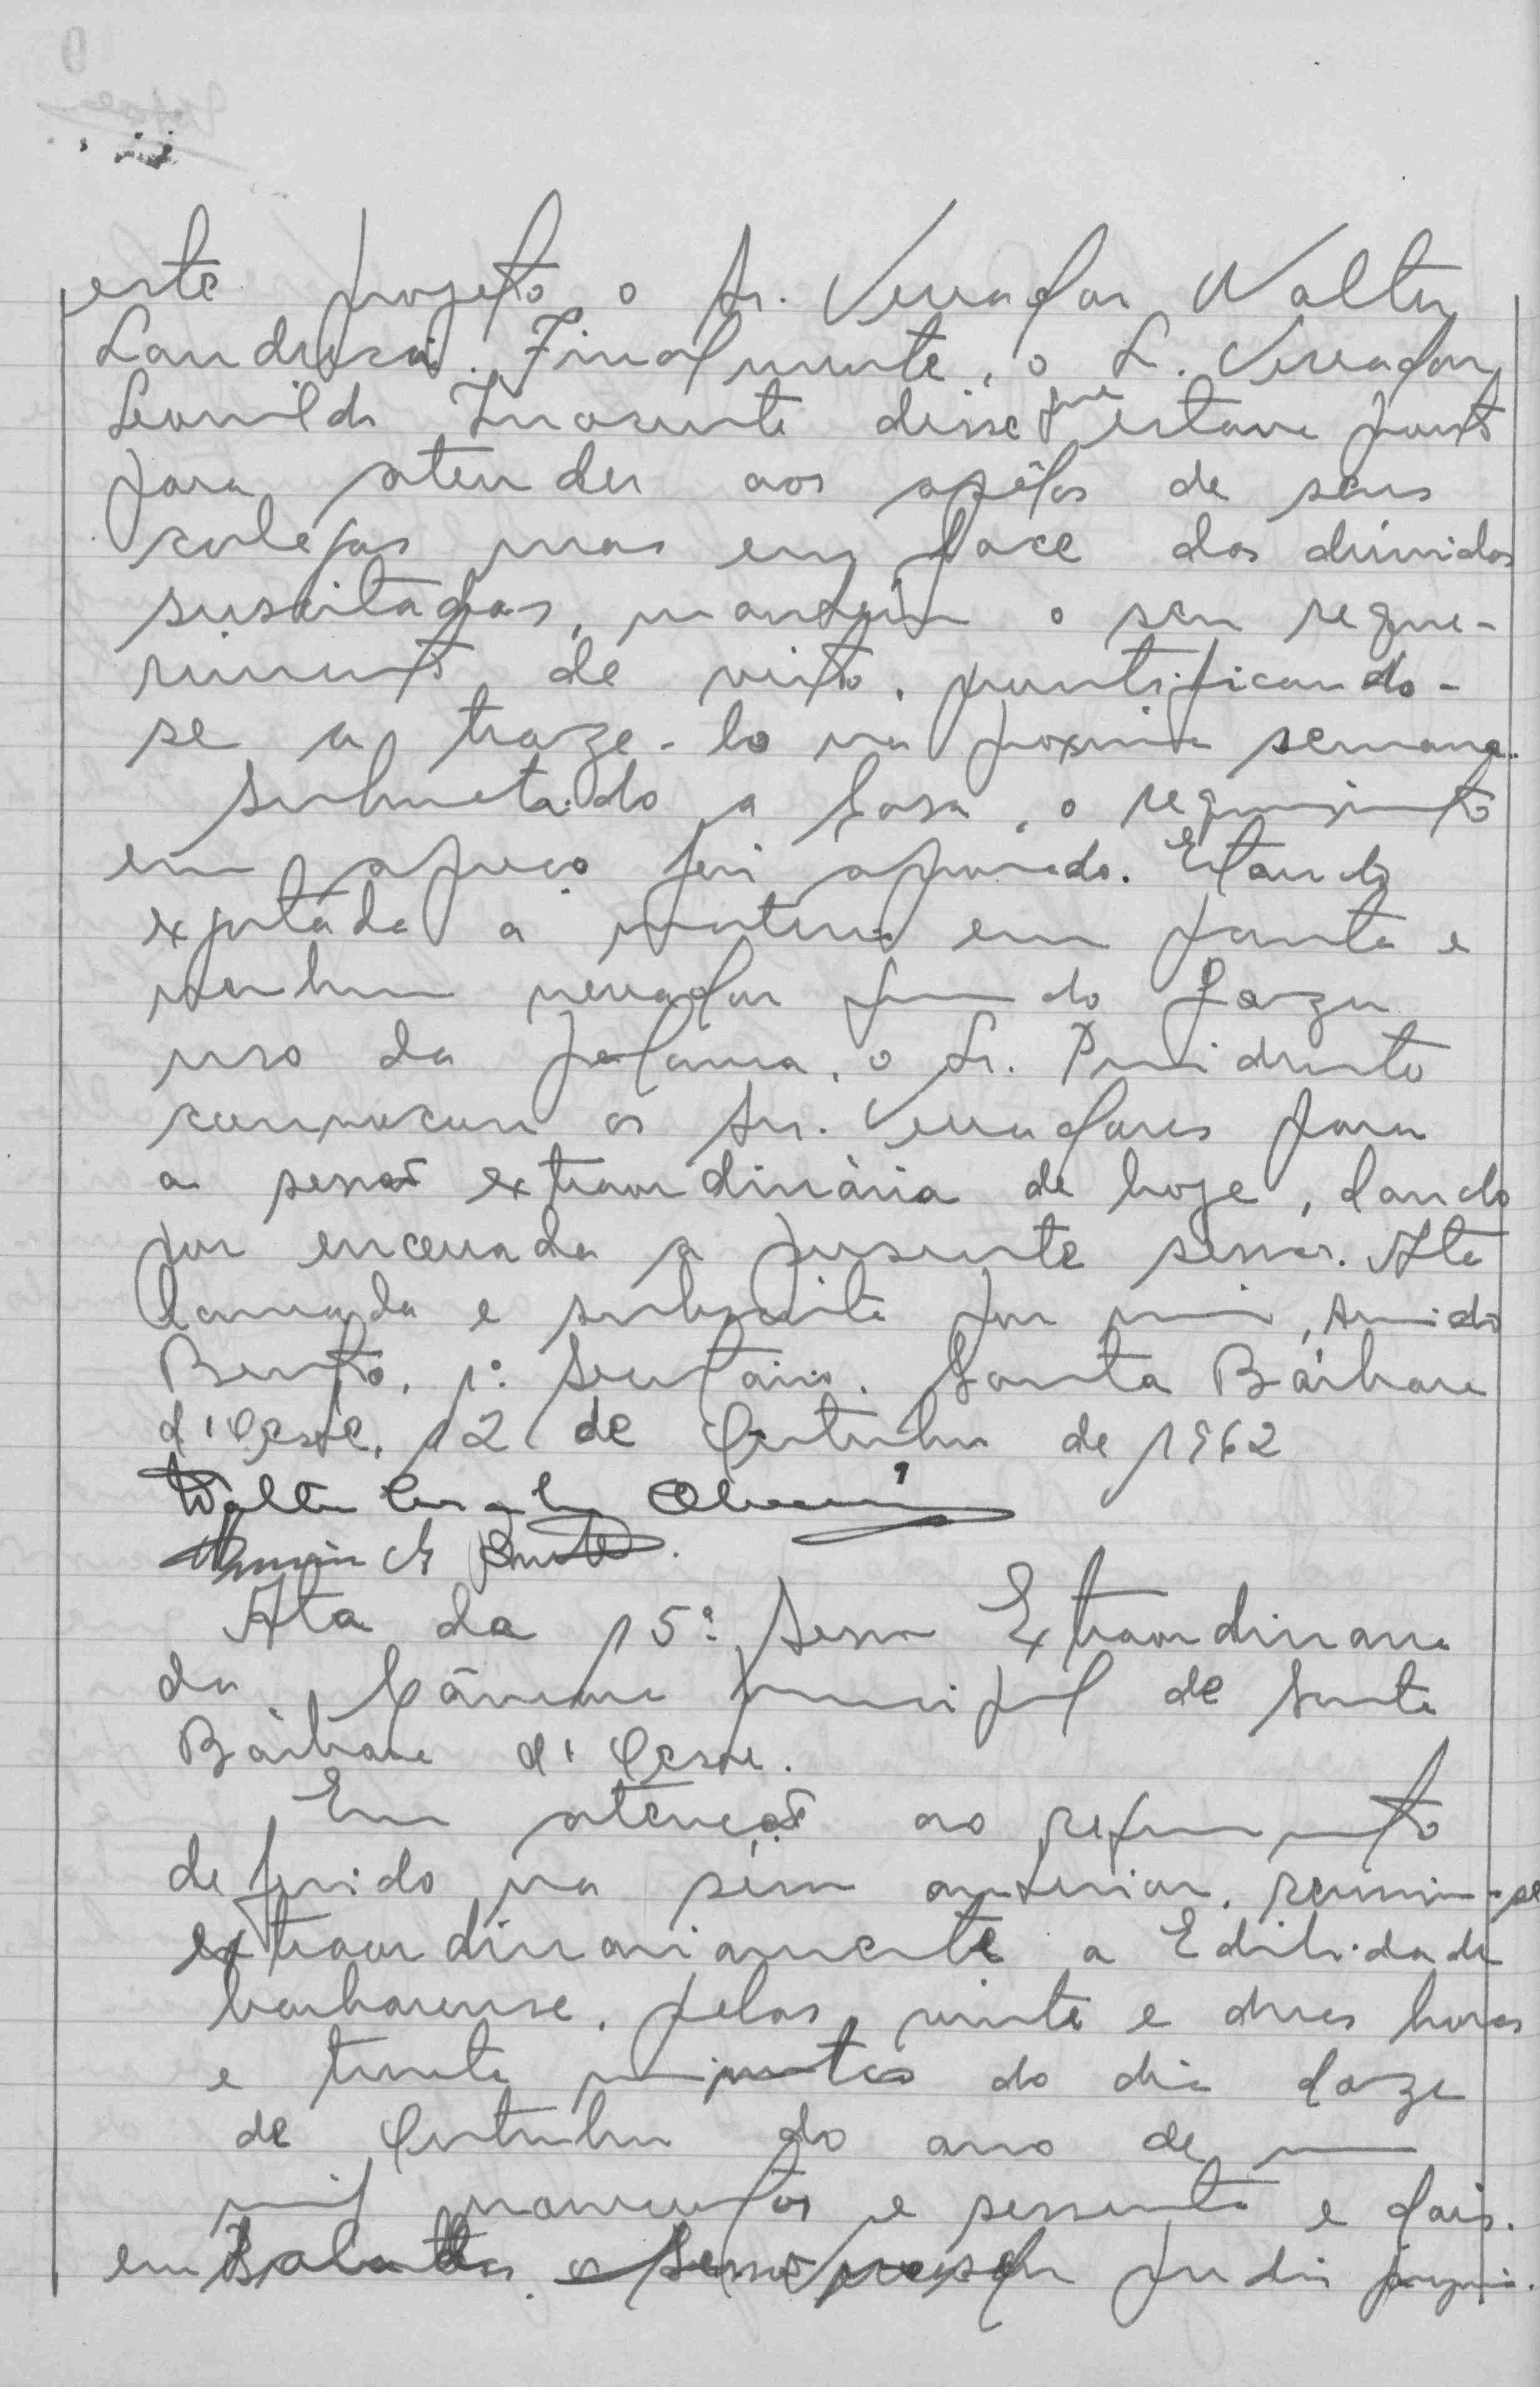 este projeto o Sr. Vereador Walter
Landucci. Finalmente, o Sr. Vereador
Leonildo Inocente disse que estava pronto
para atender aos apêlos de seus
colegas mas em face das dúvidas
suscitadas, mantém o seu reque-
rimento de vista, prontificando-
se a traze-lo na proxima semana.
Submetido a Casa, o requerimento
em apreço foi aprovado. Estando
exgotada a materia em pauta e
nenhum vereador querendo fazer
uso da palavra, o Sr. Presidente
convocou os Srs. Vereadores para
a sessão extraordinária de hoje, dando
por encerrada a presente sessão. Ata
lavrada e subscrita por mim,
Bento, 1º Secretário. Santa Bárbara
d'Oeste, 12 de Outubro de 1962
Walter
Ata da 15ª Sessão Extraordinaria
da Câmara Municipal de Santa
Bárbara d'Oeste.
Em atenção ao requerimento
deferido na sessão anterior, reuniu-se
extraordinariamente a Edilidade
barbarense, pelas vinte e duas horas
e trinta minutos do dia doze
de Outubro do ano de um
mil novecentos e sessenta e dois.
em